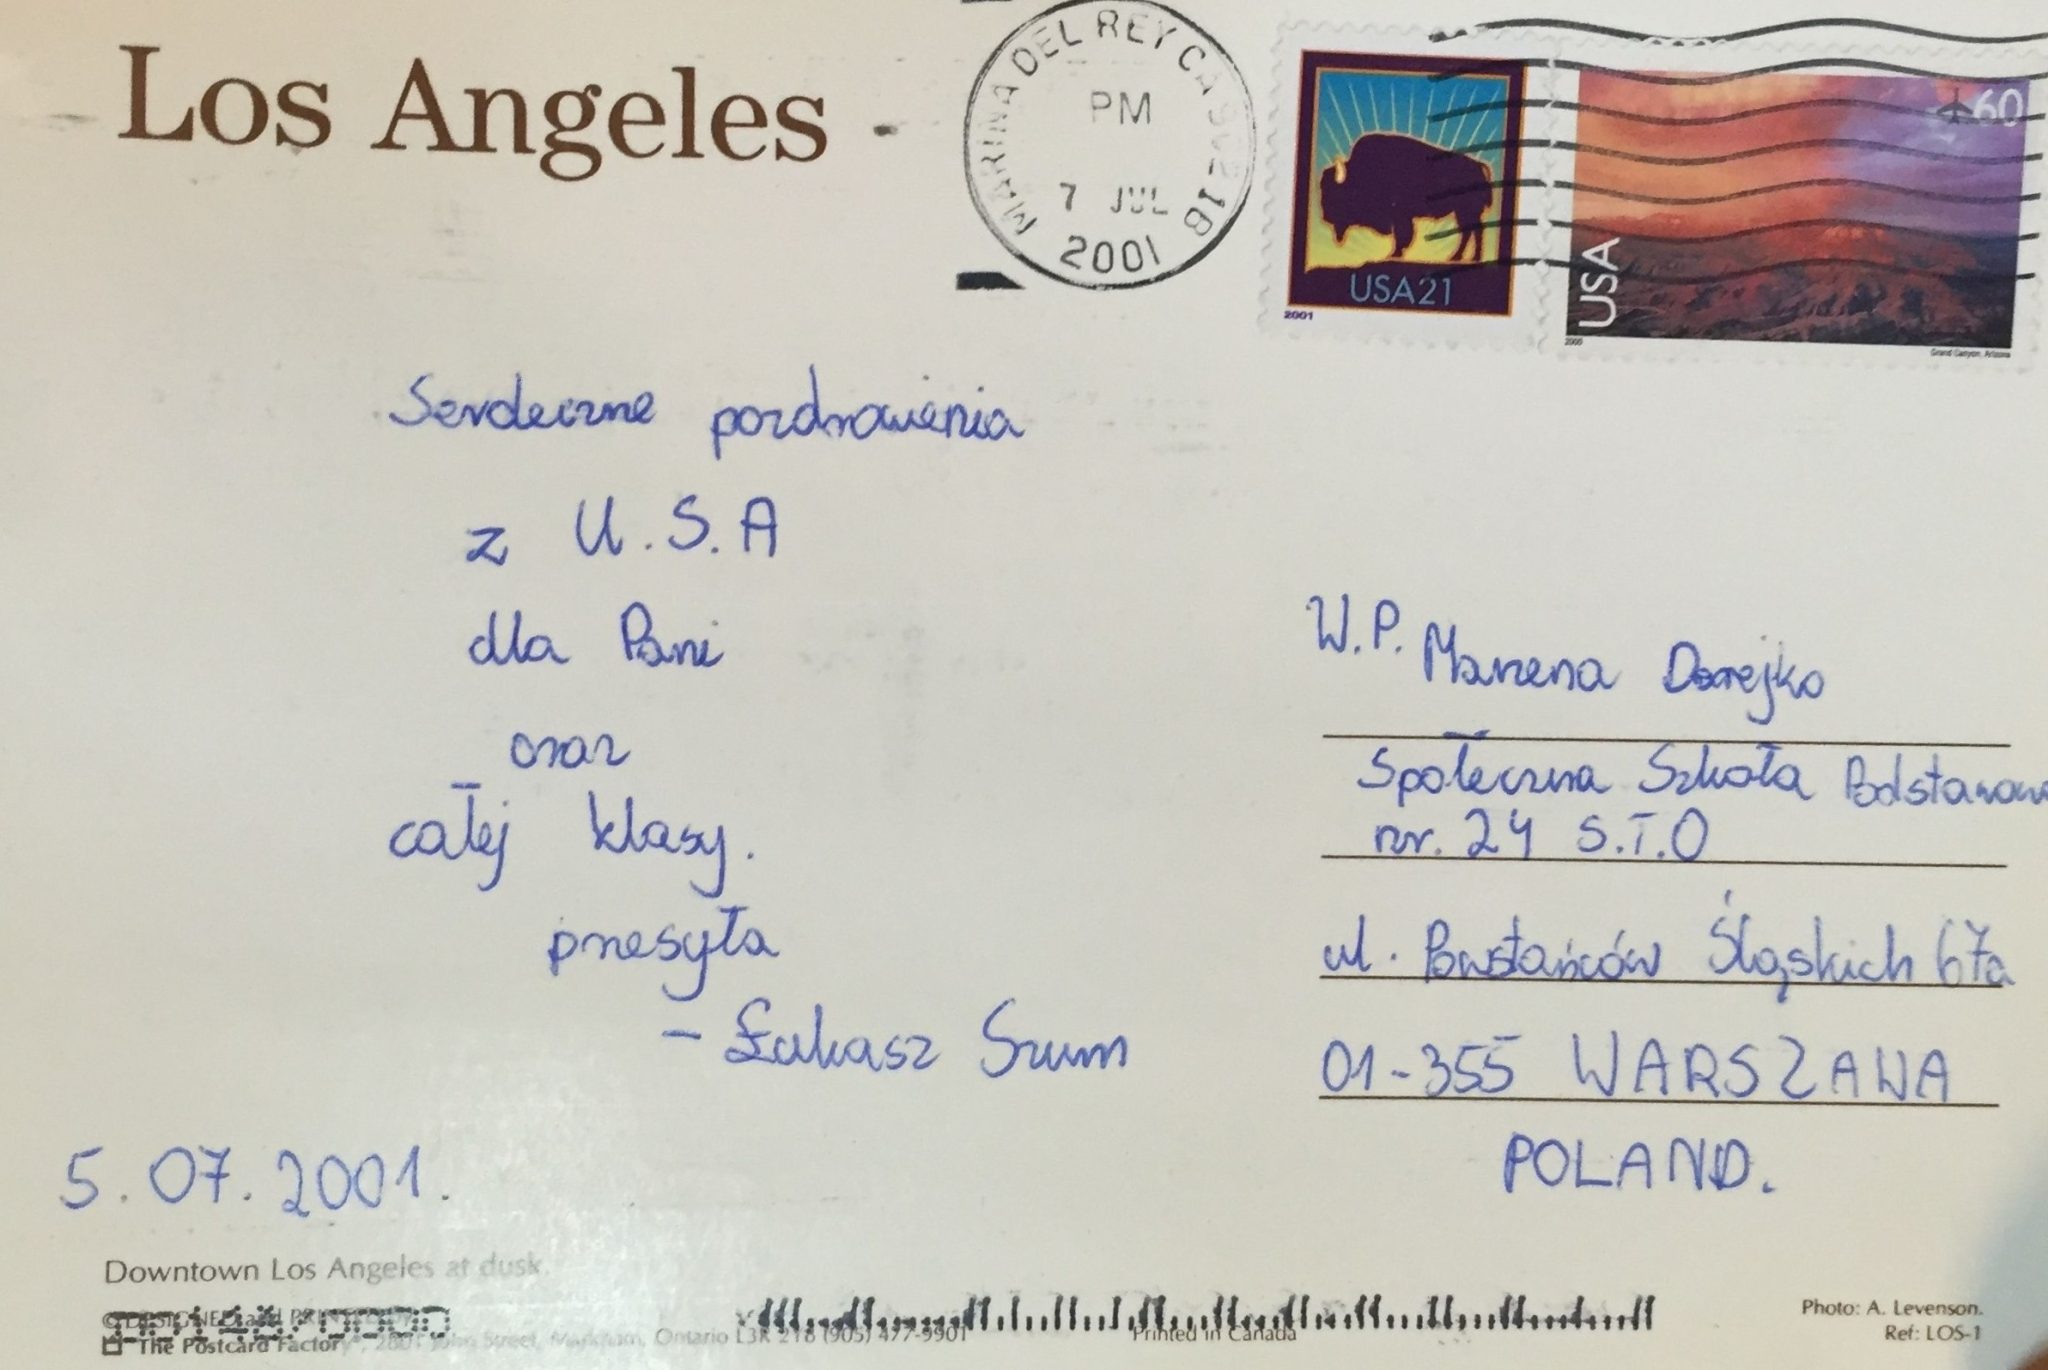 Los Angeles
MARINA DEL REY CA
PM
7 JUL
2001
USA21
2001
60
USA
2000
Grand Canyon, Arizona
Serdeczne pozdrowienia
z U.S.A
dla Pani
oraz
całej klasy.
przesyła
- Łukasz Szum
5.07.2001.
W.P. Marzena Darejko
Społeczna Szkoła Podstawowa
nr. 24 S.T.O
ul. Powstańców Śląskich 67a
01-355 WARSZAWA
POLAND.
Downtown Los Angeles at dusk.
DESIGNED and
The Postcard Factory, 2801 John Street, Markham, Ontario L3R 2Y8 (905) 477-9901
Printed in Canada
Photo: A. Levenson.
Ref: LOS-1